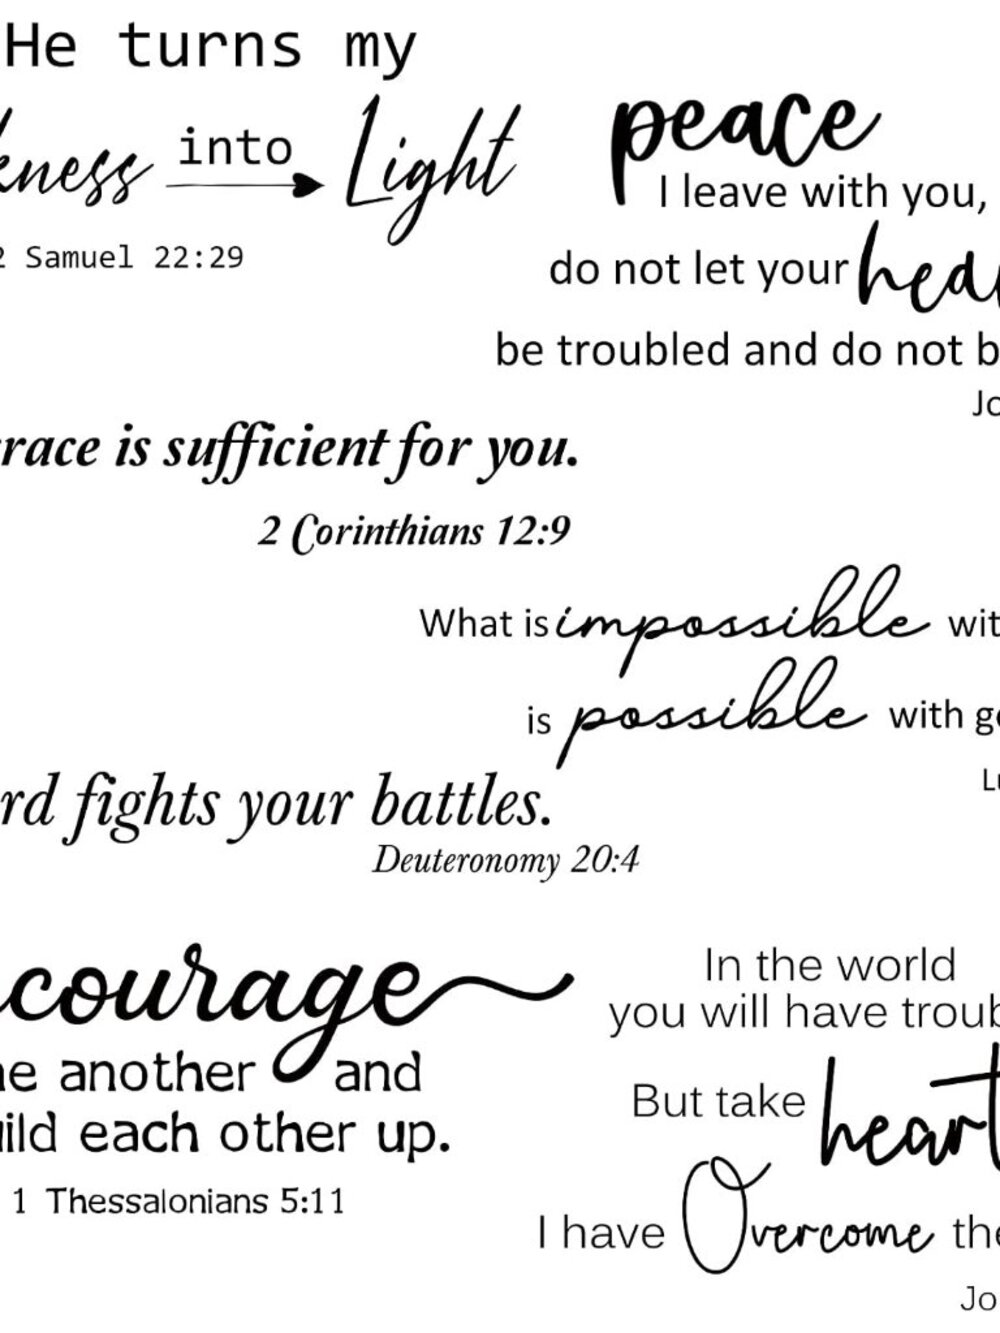 He turns my
kness into Light
2 Samuel 22:29
peace
I leave with you,
do not let your hear
be troubled and do not b
Jo
race is sufficient for you.
2 Corinthians 12:9
What is impossible wit
is possible with g
Lu
rd fights your battles.
Deuteronomy 20:4
courage
ne another and
uild each other up.
1 Thessalonians 5:11
In the world
you will have troub
But take heart
I have Overcome the
Jo